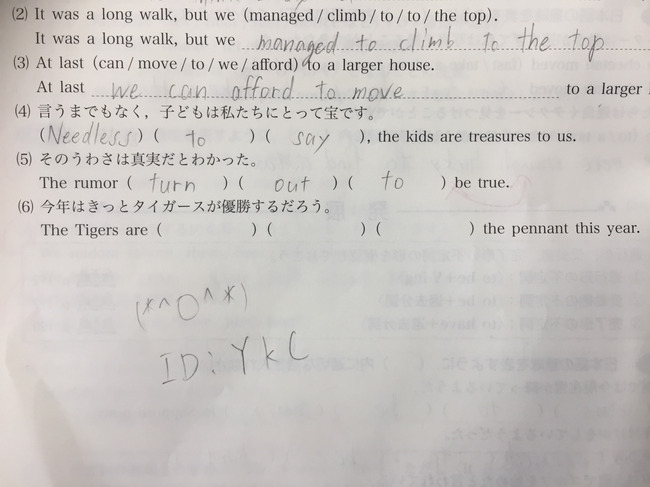 (2) It was a long walk, but we (managed / climb / to / to / the top).
It was a long walk, but we managed to climb to the top
(3) At last (can / move / to / we / afford) to a larger house.
At last we can afford to move to a larger
(4) 言うまでもなく，子どもは私たちにとって宝です。
(Needless) ( to ) ( say ), the kids are treasures to us.
(5) そのうわさは真実だとわかった。
The rumor ( turn ) ( out ) ( to ) be true.
(6) 今年はきっとタイガースが優勝するだろう。
The Tigers are ( ) ( ) ( ) the pennant this year.
(*^O^*)
ID: YkC